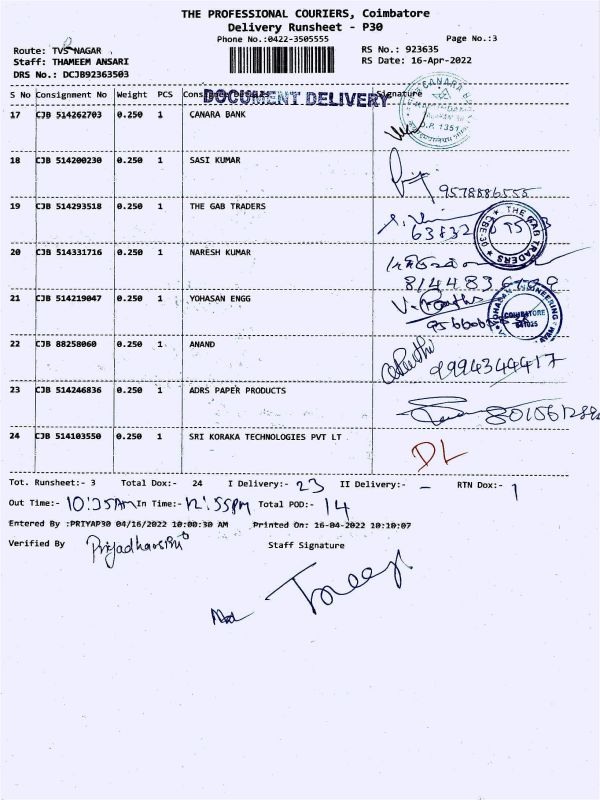 THE PROFESSIONAL COURIERS, Coimbatore
Delivery Runsheet - P30
Phone No.:0422-3505555
Page No.:3
Route: TVS NAGAR
RS No.: 923635
Staff: THAMEEM ANSARI
RS Date: 16-Apr-2022
DRS No.: DCJB92363503
S No Consignment No Weight PCS Consignee Details Signature
DOCUMENT DELIVERY
CANARA BANK
17 CJB 514262703 0.250 1 CANARA BANK
18 CJB 514200230 0.250 1 SASI KUMAR
9578886555
19 CJB 514293518 0.250 1 THE GAB TRADERS
63832
THE GAB TRADERS CBE-30
20 CJB 514331716 0.250 1 NARESH KUMAR
21 CJB 514219047 0.250 1 YOHASAN ENGG
YOHASAN ENGINEERING
COIMBATORE
641025
22 CJB 88258060 0.250 1 ANAND
9994344417
23 CJB 514246836 0.250 1 ADRS PAPER PRODUCTS
24 CJB 514103550 0.250 1 SRI KORAKA TECHNOLOGIES PVT LT
DL
Tot. Runsheet:- 3 Total Dox:- 24 I Delivery:- 23 II Delivery:- - RTN Dox:- 1
Out Time:- 10:35AM In Time:- 12:55PM Total POD:- 14
Entered By :PRIYAP30 04/16/2022 10:00:30 AM Printed On: 16-04-2022 10:10:07
Verified By Priyadharshni Staff Signature